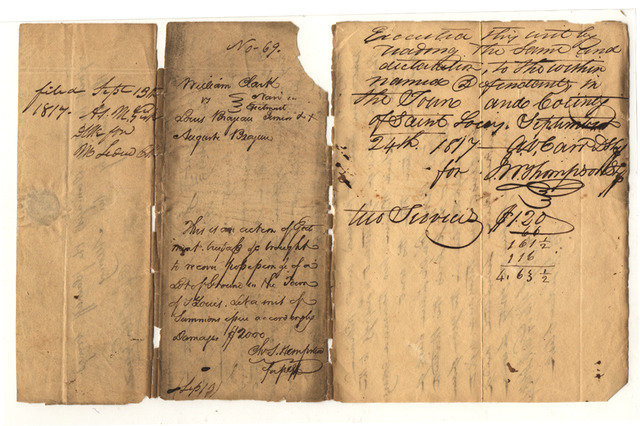 filed Sept 13th
1817.
No. 69.
William Clark
vs
Louis Brazeau Senior &
Auguste Brazeau
This is an action of Eject
ment. trespass brought
to recover possession of a
Lot of Ground in the Town
of St Louis. Let a writ of
Summons issue accordingly
Damages $2000
S. Hempstead
for plff
Executed this writ by
reading the same and
declaration, to the within
named Defendants in
the Town and County
of Saint Louis, September
24th 1817—
for
two Services $1 20
66
1 61 ½
1 16
4. 63 ½